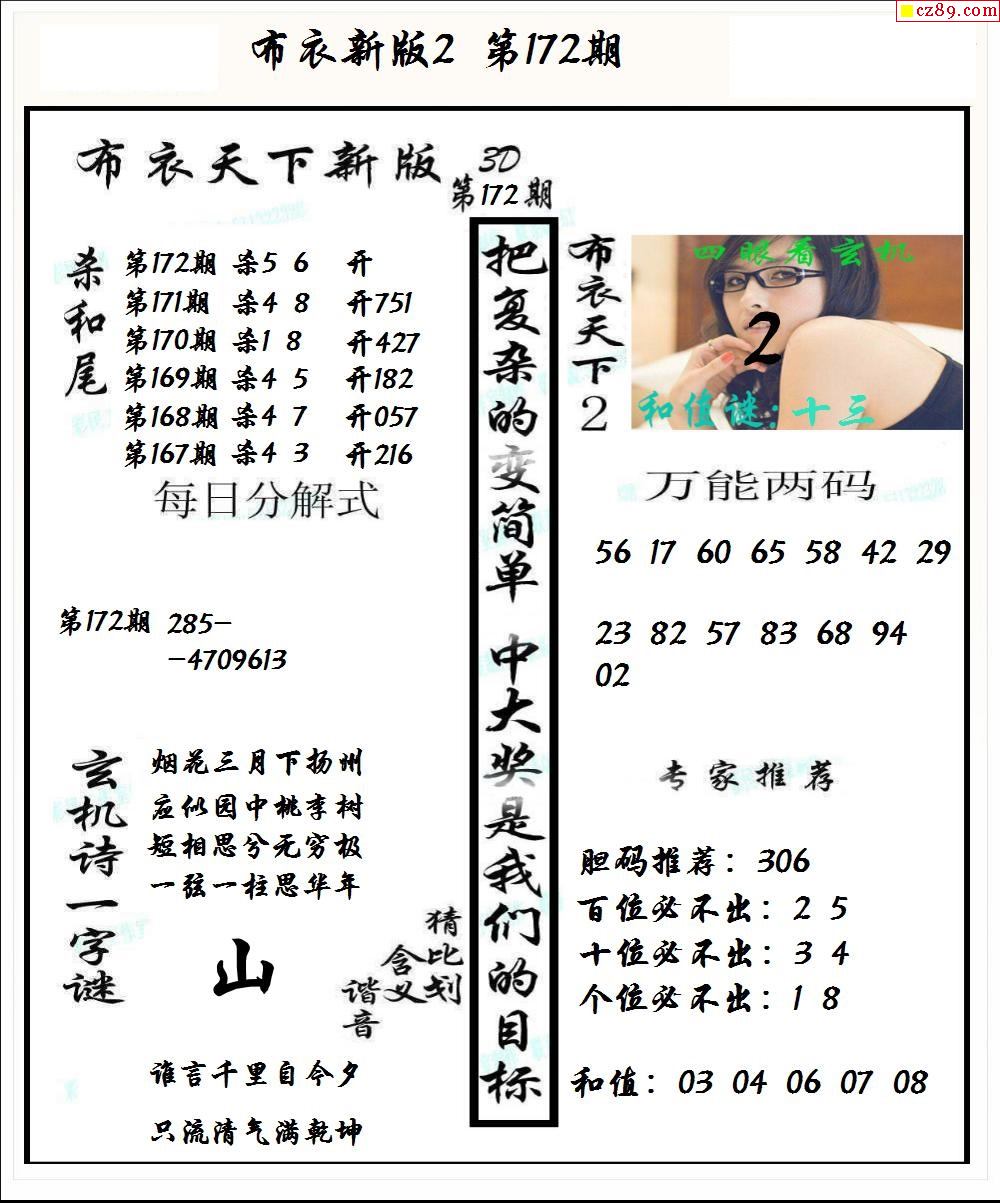 cz89.com
布衣新版2 第172期
布衣天下新版 3D
第172期
杀和尾
第172期 杀5 6 开
第171期 杀4 8 开751
第170期 杀1 8 开427
第169期 杀4 5 开182
第168期 杀4 7 开057
第167期 杀4 3 开216
每日分解式
第172期 285-
-4709613
玄机诗一字谜
烟花三月下扬州
应似园中桃李树
短相思兮无穷极
一弦一柱思华年
山
猜比划
含义
谐音
谁言千里自今夕
只流清气满乾坤
把复杂的变简单 中大奖是我们的目标
布衣天下2
四眼看玄机
2
和值谜:十三
万能两码
56 17 60 65 58 42 29
23 82 57 83 68 94
02
专家推荐
胆码推荐：306
百位必不出：2 5
十位必不出：3 4
个位必不出：1 8
和值：03 04 06 07 08